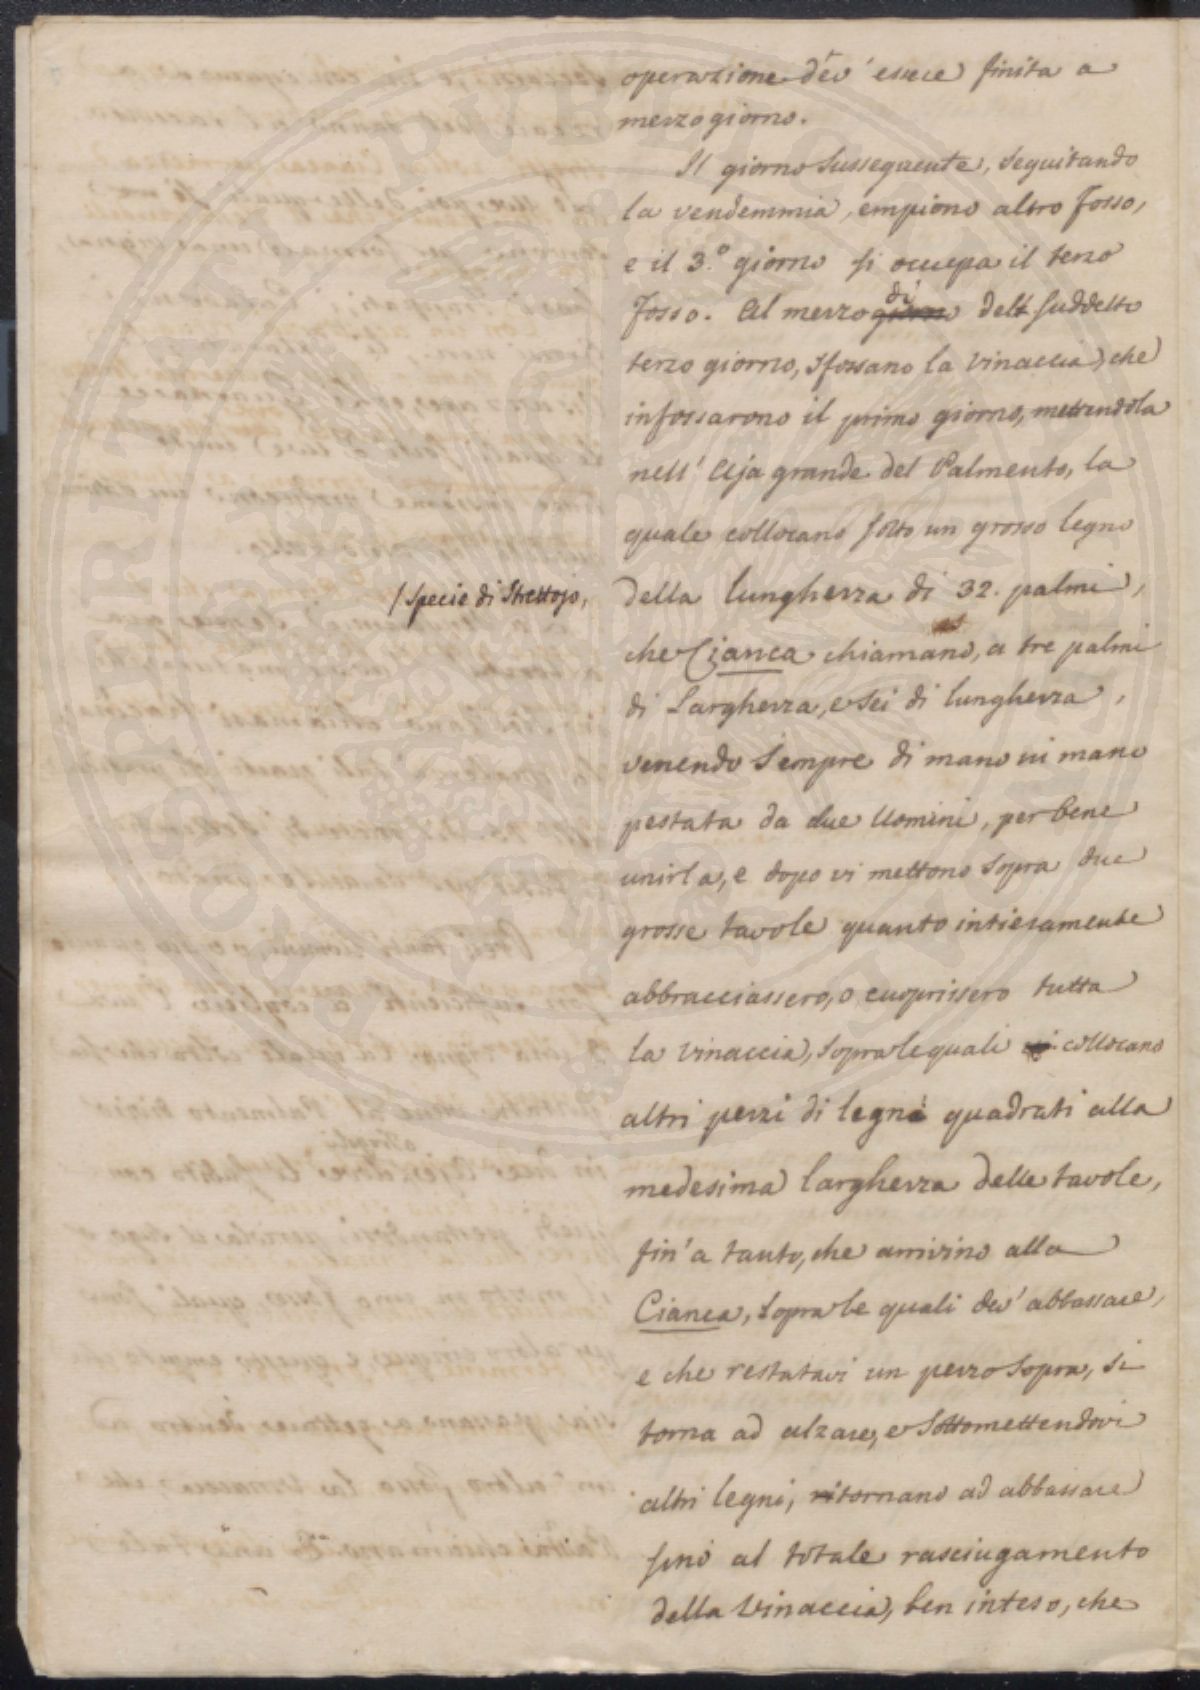 operazione dev' essere finita a
mezzogiorno.
Il giorno Sussequente, seguitando
la vendemmia, empiono altro fosso,
e il 3.º giorno si occupa il terzo
fosso. Al mezzogiorno dì dell suddetto
terzo giorno, sfossano la vinaccia, che
infossarono il primo giorno, mettendola
nell' Aja grande del Palmento, la
quale collocano sotto un grosso legno
/ specie di Strettojo,
della lunghezza di 32. palmi,
che Cianca chiamano, a tre palmi
di Larghezza, e sei di lunghezza,
venendo sempre di mano in mano
pestata da due Uomini, per bene
unirla, e dopo vi mettono sopra due
grosse tavole quanto intieramente
abbracciassero, o cuoprissero tutta
la vinaccia, sopra le quali collocano
altri pezzi di legni quadrati alla
medesima larghezza delle tavole,
fin' a tanto, che arrivino alla
Cianca, sopra le quali dev' abbassare,
e che restatavi un pezzo sopra, si
torna ad alzare, e sottomettendovi
altri legni, ritornano ad abbassare
sino al totale rasciugamento
della Vinaccia, ben inteso, che